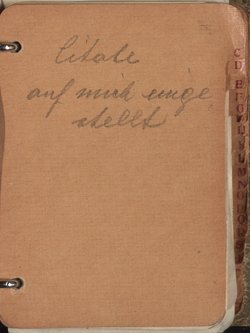 Citate
auf mich einge
stellt